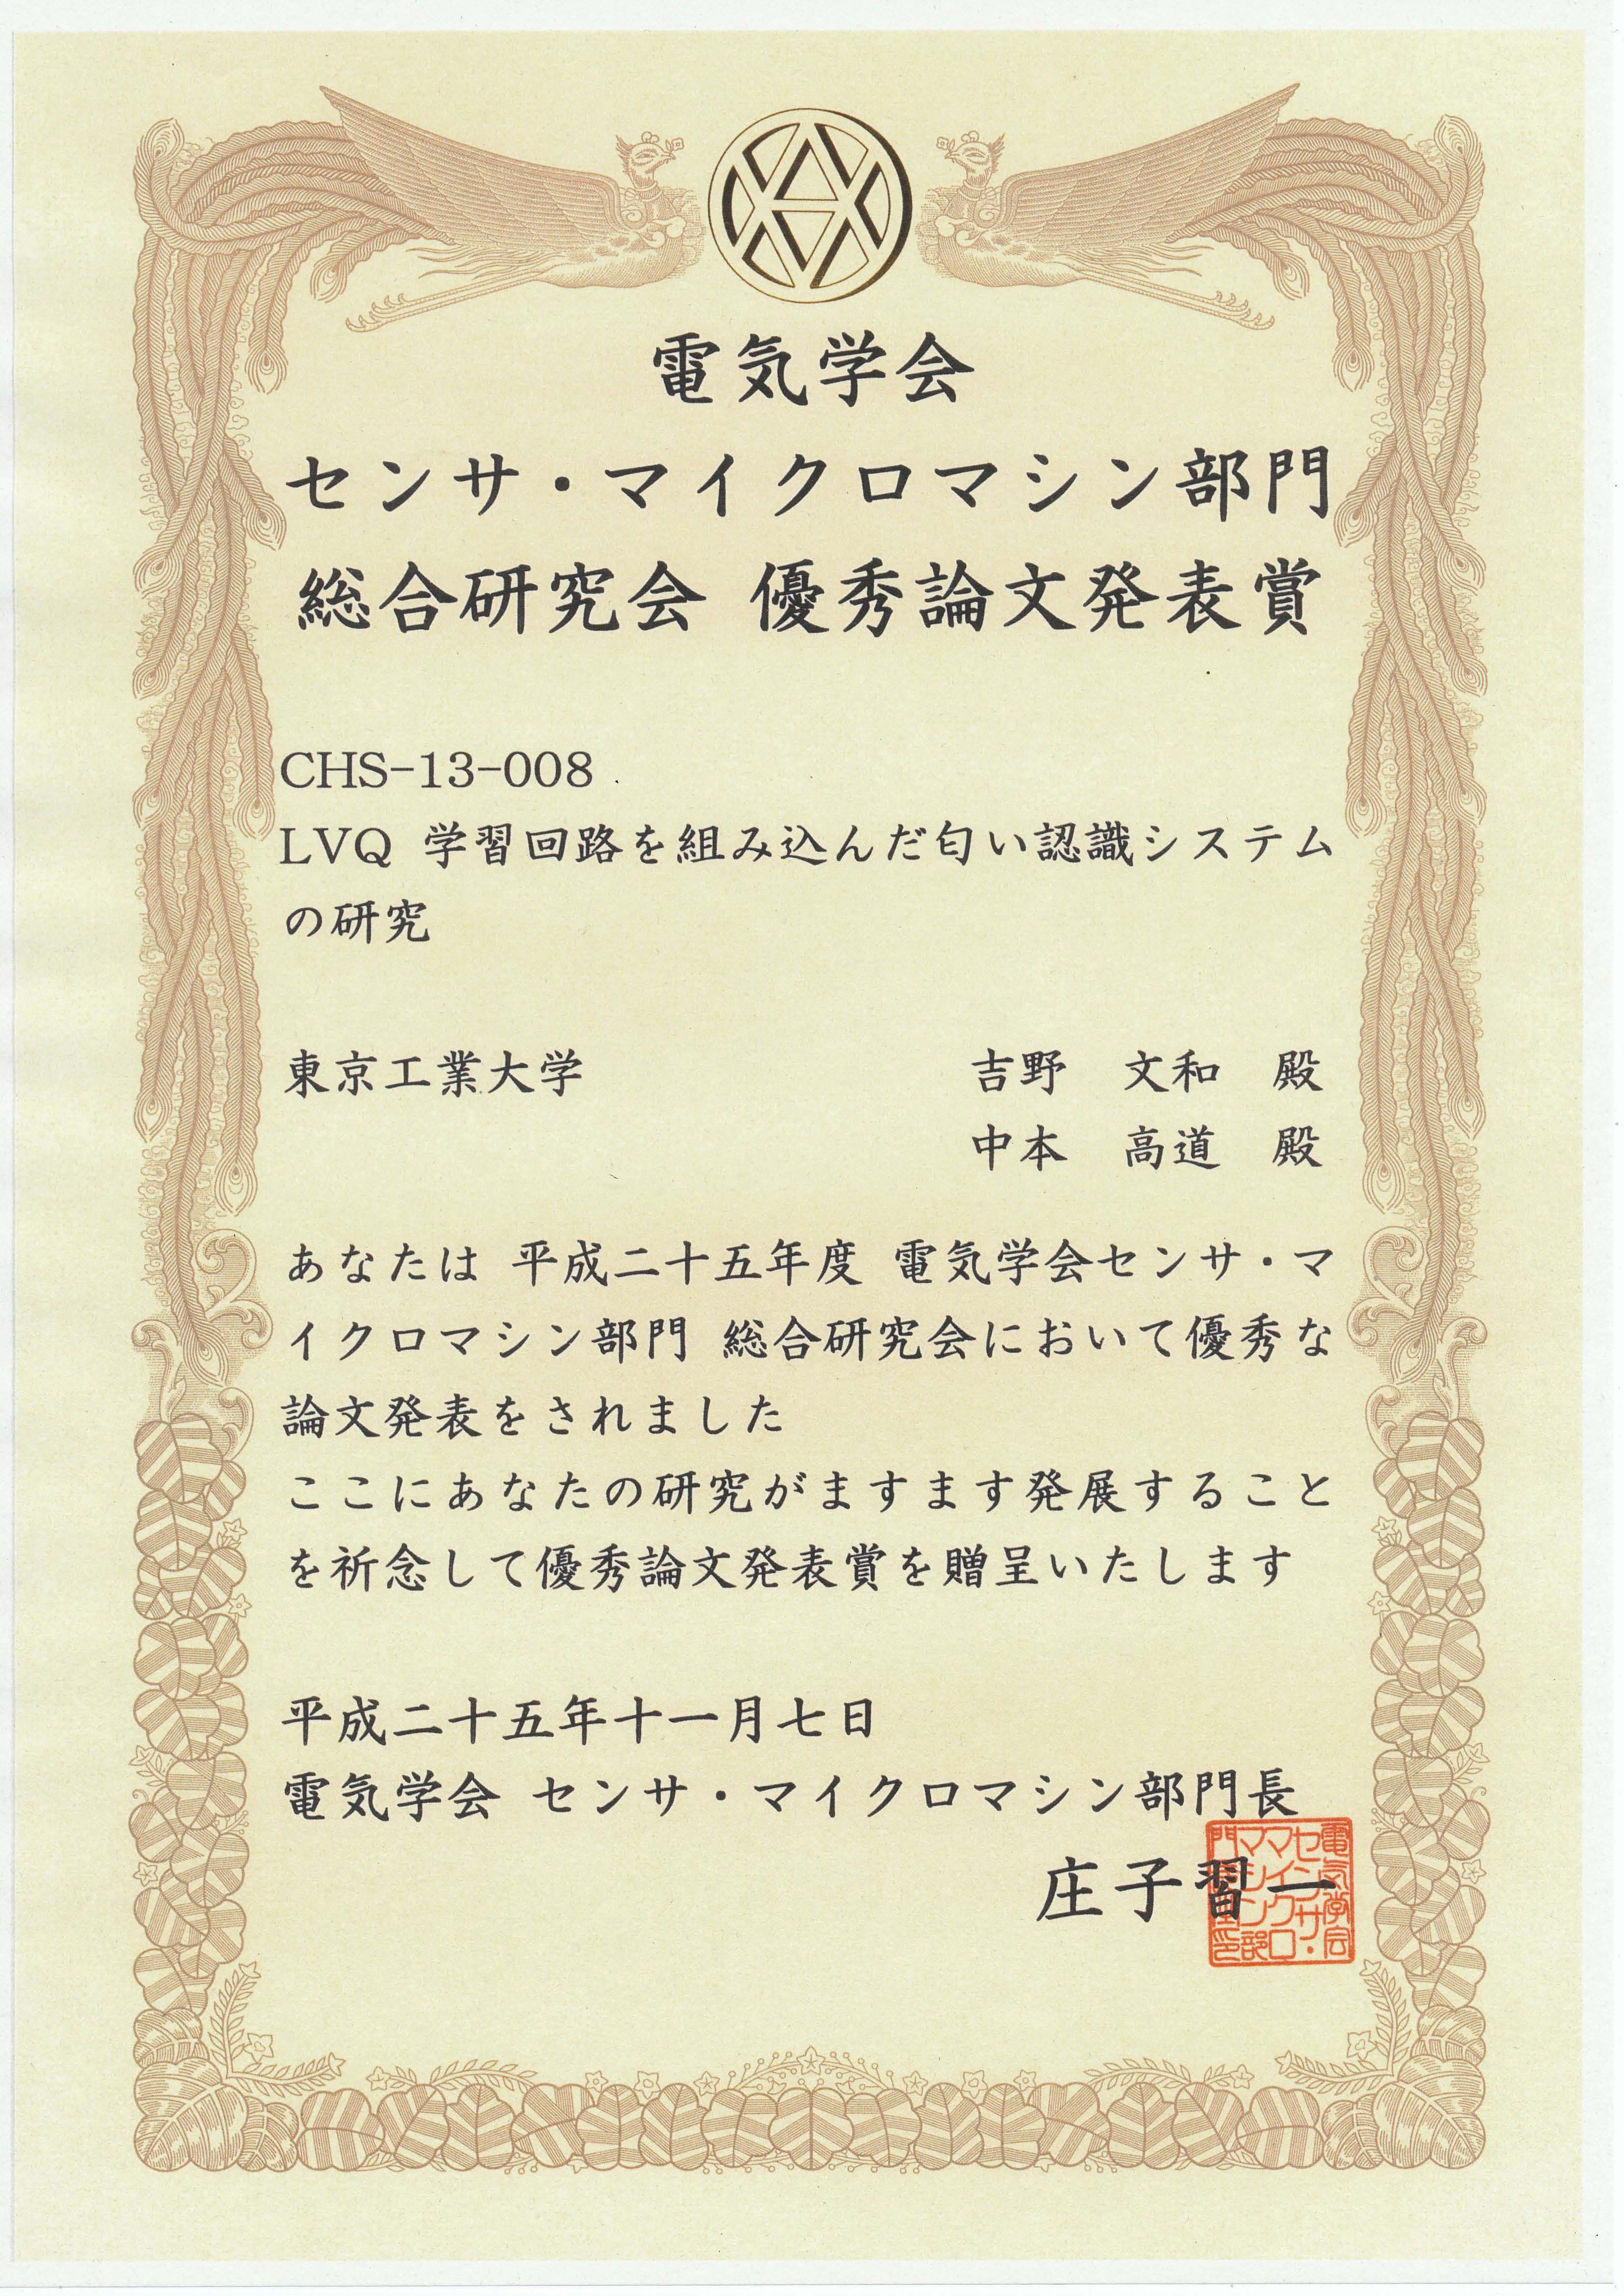 電気学会
センサ・マイクロマシン部門
総合研究会 優秀論文発表賞
CHS-13-008
LVQ 学習回路を組み込んだ匂い認識システム
の研究
東京工業大学 吉野 文和 殿
中本 高道 殿
あなたは 平成二十五年度 電気学会センサ・マ
イクロマシン部門 総合研究会において優秀な
論文発表をされました
ここにあなたの研究がますます発展すること
を祈念して優秀論文発表賞を贈呈いたします
平成二十五年十一月七日
電気学会 センサ・マイクロマシン部門長
庄子習一
電気学会
センサ・
マイクロ
マシン部